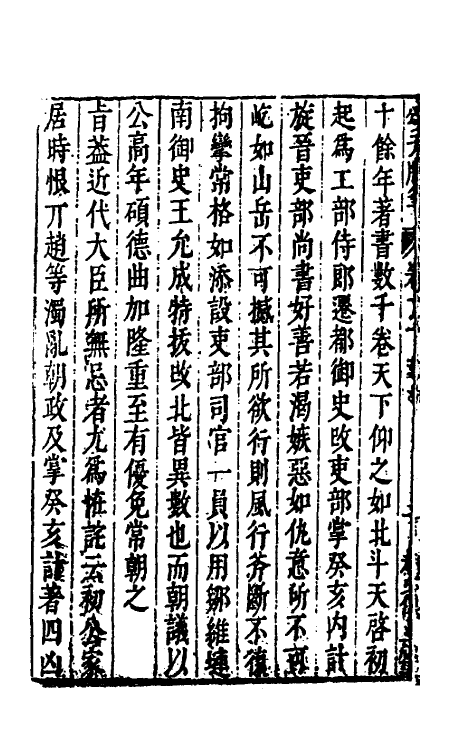 十餘年著書數千卷天下仰之如北斗天啓初
起爲工部侍郎遷都御史改吏部掌癸亥内計
旋晉吏部尚書好善若渴嫉惡如仇意所不可
屹如山岳不可撼其所欲行則風行斧斷不復
拘攣常格如添設吏部司官一員以用鄒維璉
南御史王允成特拔改北皆異數也而朝議以
公高年碩德曲加隆重至有優免常朝之
旨葢近代大臣所無忌者尤爲恠詫云初公家
居時恨丌趙等濁亂朝政及掌癸亥計著四凶